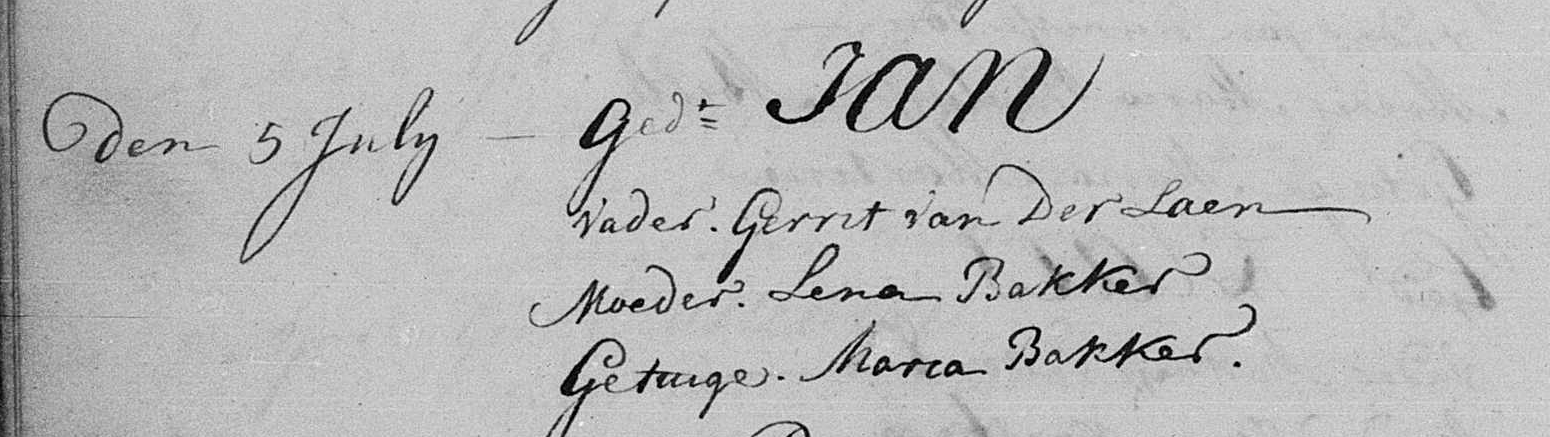 den 5 July — Ged:= JAN
Vader. Gerrit van Der Laen
Moeder. Lena Bakker
Getuige. Maria Bakker.